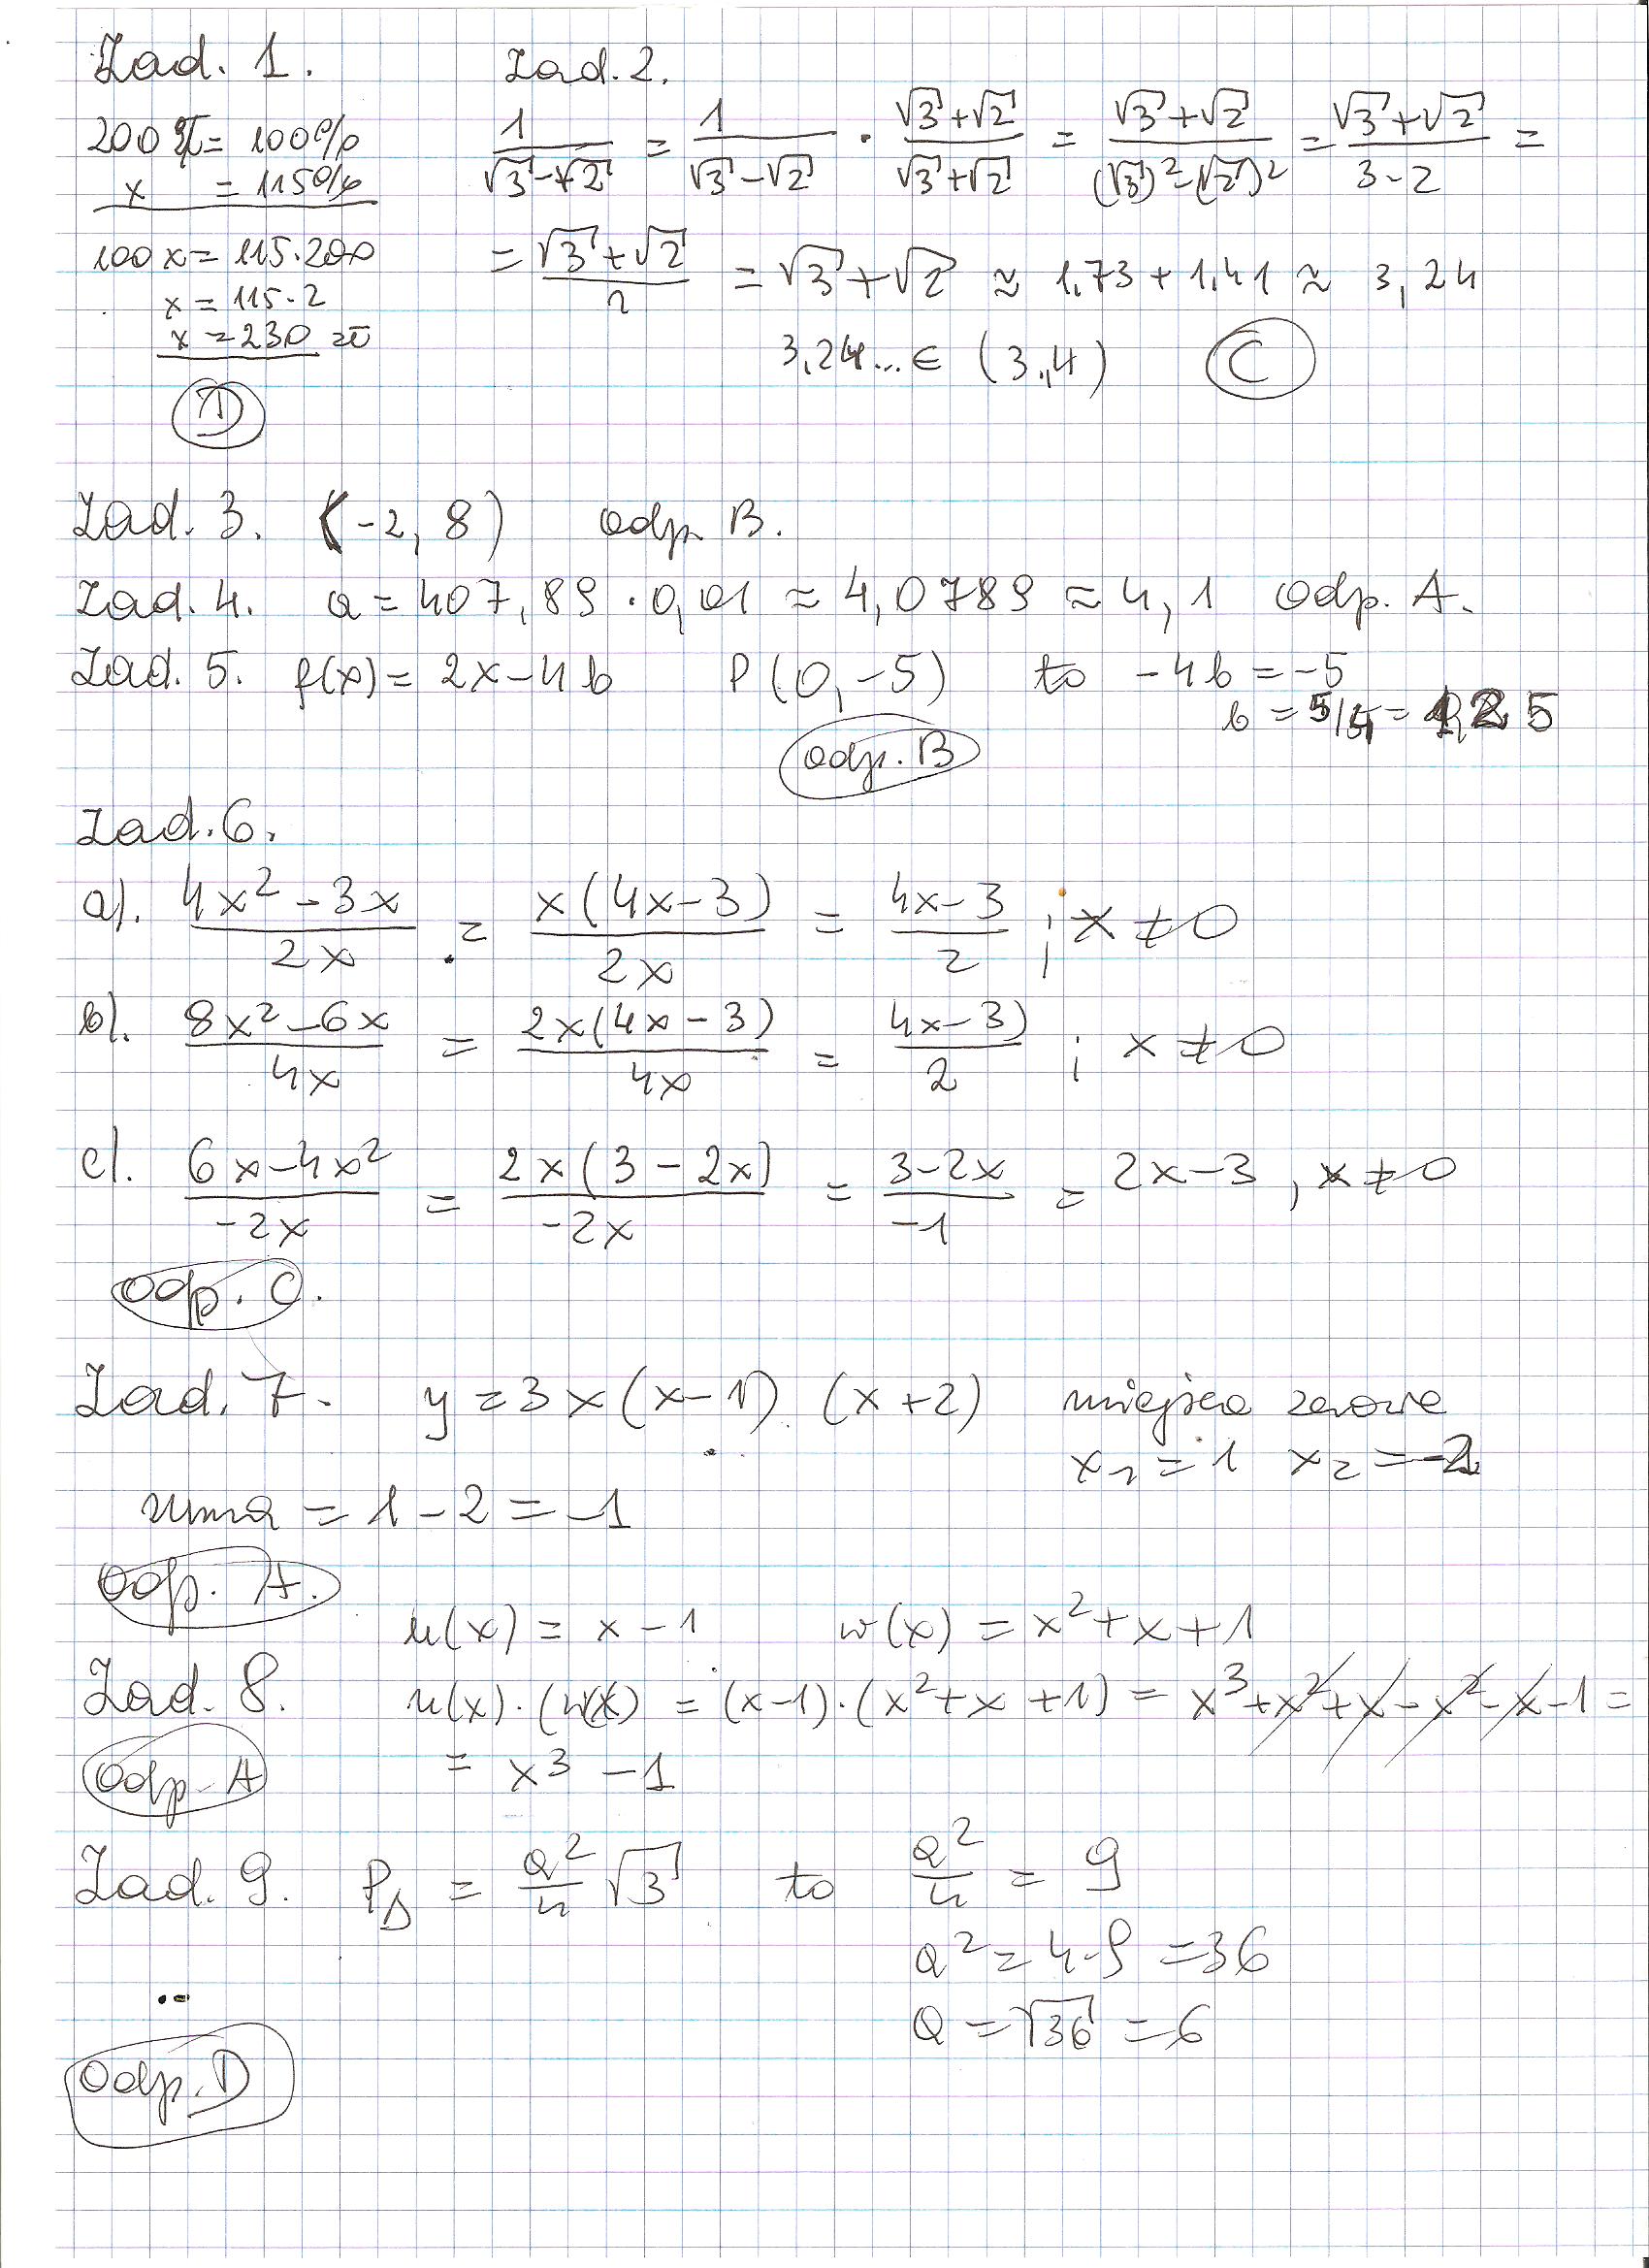 Zad. 1.
200 zł = 100%
x = 115%
100x = 115·200
x = 115·2
x = 230 zł
D
Zad. 2.
1/(√3-√2) = 1/(√3-√2) · (√3+√2)/(√3+√2) = (√3+√2)/((√3)²-(√2)²) = (√3+√2)/(3-2) =
= (√3+√2)/1 = √3+√2 ≈ 1,73+1,41 ≈ 3,24
3,24... ∈ (3,4) C
Zad. 3. (-2, 8) odp. B.
Zad. 4. a = 407,89 · 0,01 ≈ 4,0789 ≈ 4,1 odp. A.
Zad. 5. f(x) = 2x-4b P(0,-5) to -4b = -5
b = 5/4 = 1,25
odp. B
Zad. 6.
a). (4x²-3x)/(2x) = x(4x-3)/(2x) = (4x-3)/2 ; x ≠ 0
b). (8x²-6x)/(4x) = 2x(4x-3)/(4x) = (4x-3)/2 ; x ≠ 0
c). (6x-4x²)/(-2x) = 2x(3-2x)/(-2x) = (3-2x)/(-1) = 2x-3, x ≠ 0
Odp. C.
Zad. 7. y = 3x(x-1)(x+2) miejsca zerowe
x₁ = 1 x₂ = -2
suma = 1-2 = -1
Odp. A.
u(x) = x-1 w(x) = x²+x+1
Zad. 8. u(x)·(w(x) = (x-1)·(x²+x+1) = x³+x²+x-x²-x-1 =
= x³-1
Odp. A
Zad. 9. P△ = a²/4 √3 to a²/4 = 9
a² = 4·9 = 36
a = √36 = 6
Odp. D